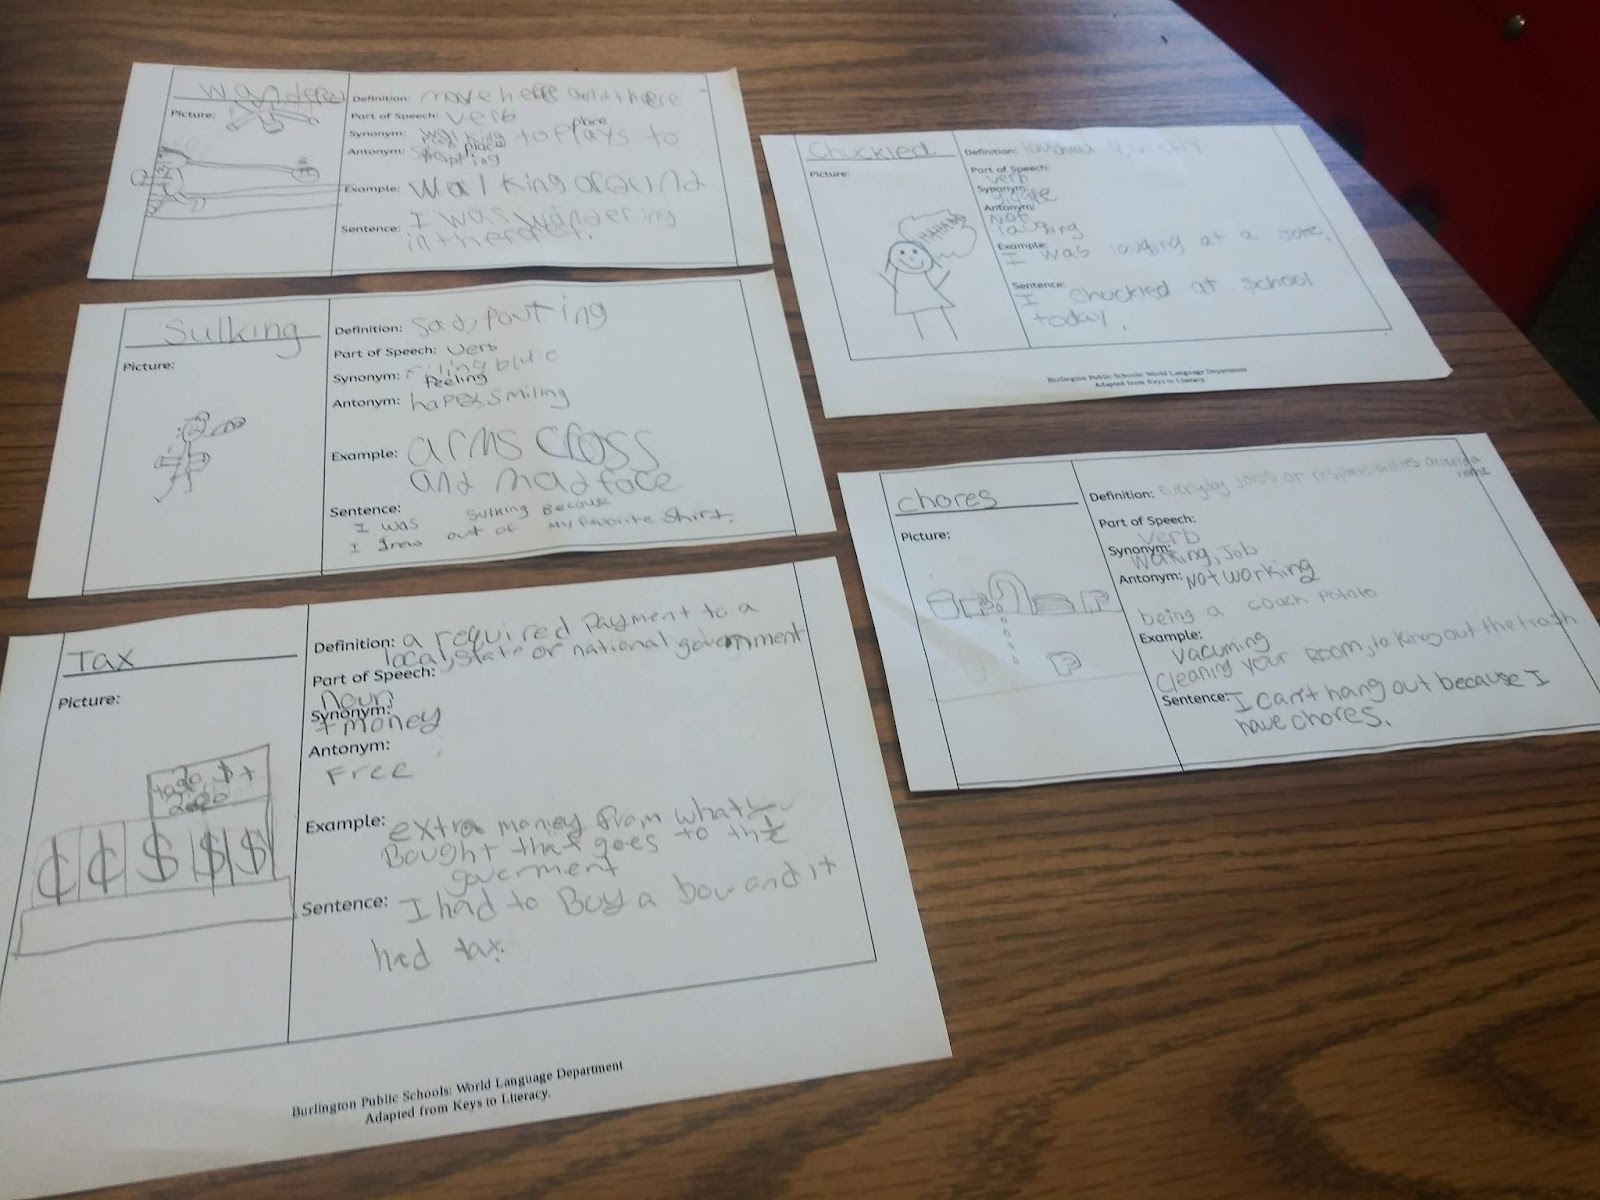 wandered
Picture:
Definition: move here and there
Part of Speech: verb
Synonym: walking place to plays to
Antonym: place
Example: walking around
Sentence: I was wandering
in the
Sulking
Picture:
Definition: Sad, Pouting
Part of Speech: verb
Synonym: blue
feeling
Antonym: Smiling
Example: arms cross
and mad face
Sentence:
I was sulking Because
I grew out of my favorite shirt.
Tax
Picture:
tax $
¢ ¢ $ $ $
Definition: a required payment to a
local, state or national government
Part of Speech:
Noun
Synonym:
+ money
Antonym:
Free
Example: extra money from what
Bought that goes to the
goverment
Sentence: I had to Buy a and it
had tax.
Burlington Public Schools: World Language Department
Adapted from Keys to Literacy.
Chuckled
Picture:
HAHAHA
Definition: laughed
Part of Speech:
verb
Synonym:
Antonym:
Not
laughing
Example:
I was laughing at a joke.
Sentence:
I chuckled at School
today.
Burlington Public Schools: World Language Department
Adapted from Keys to Literacy.
chores
Picture:
Definition: everyday jobs or responsibilites around a
home
Part of Speech:
verb
Synonym:
Working, Job
Antonym: Not working
being a couch potato
Example:
vacuming
cleaning your Room, taking out the trash
Sentence: I can't hang out because I
have chores.